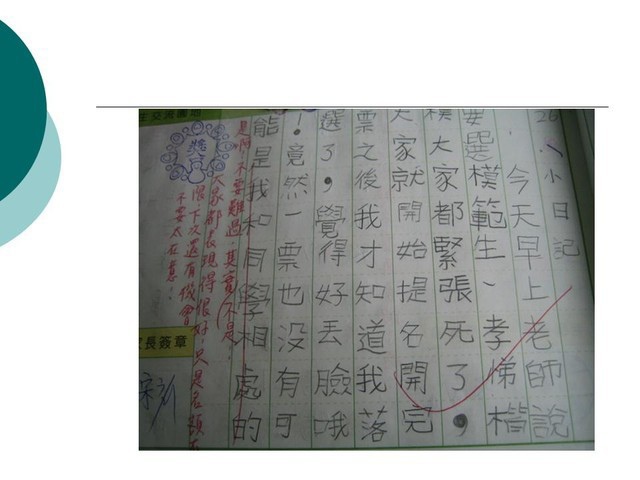 26
小日記
今天早上老師說
要選模範生、孝悌楷
模大家都緊張死了，
大家就開始提名開完
票之後我才知道我落
選了，覺得好丟臉哦
！竟然一票也没有可
能是我和同學相處的
是啊！不要難過，其實(不是)：
大家都表現得很好，只是名額有
限，下次還有機會
不要太在意！
長簽章